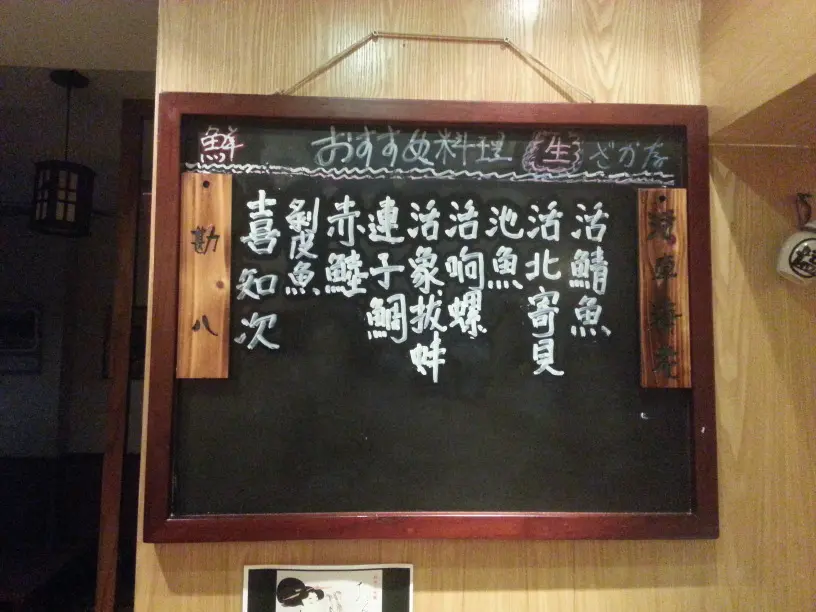 鮮 おすすめ料理 生 ざかな
活鯖魚
活北寄貝
池魚
活响螺
活象拔蚌
連子鯛
赤鯥
剝皮魚
喜知次
勘八